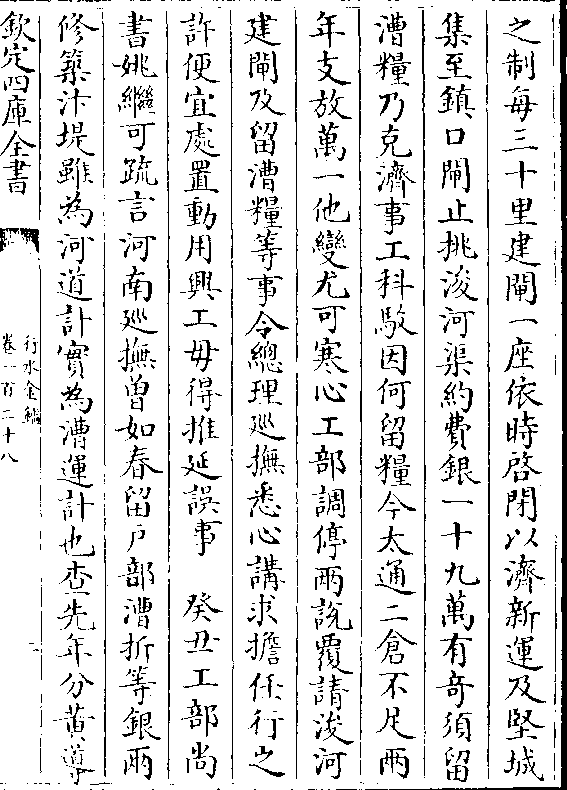 之制每三十里建閘一座依時啓閉以濟新運及堅城
集至鎮口閘止挑浚河渠約費銀一十九萬有奇須留
漕糧乃克濟事工科駁因何留糧今太通二倉不足兩
年支放萬一他變尤可寒心工部調停兩說覆請浚河
建閘及留漕糧等事令總理廵撫悉心講求擔任行之
許便宜處置動用興工毋得推延誤事　癸丑工部尚
書姚繼可疏言河南廵撫曾如春留戶部漕折等銀兩
修築汴堤雖為河道計實為漕運計也查先年分黃導
欽定四庫全書
行水金鑑
卷一百二十八